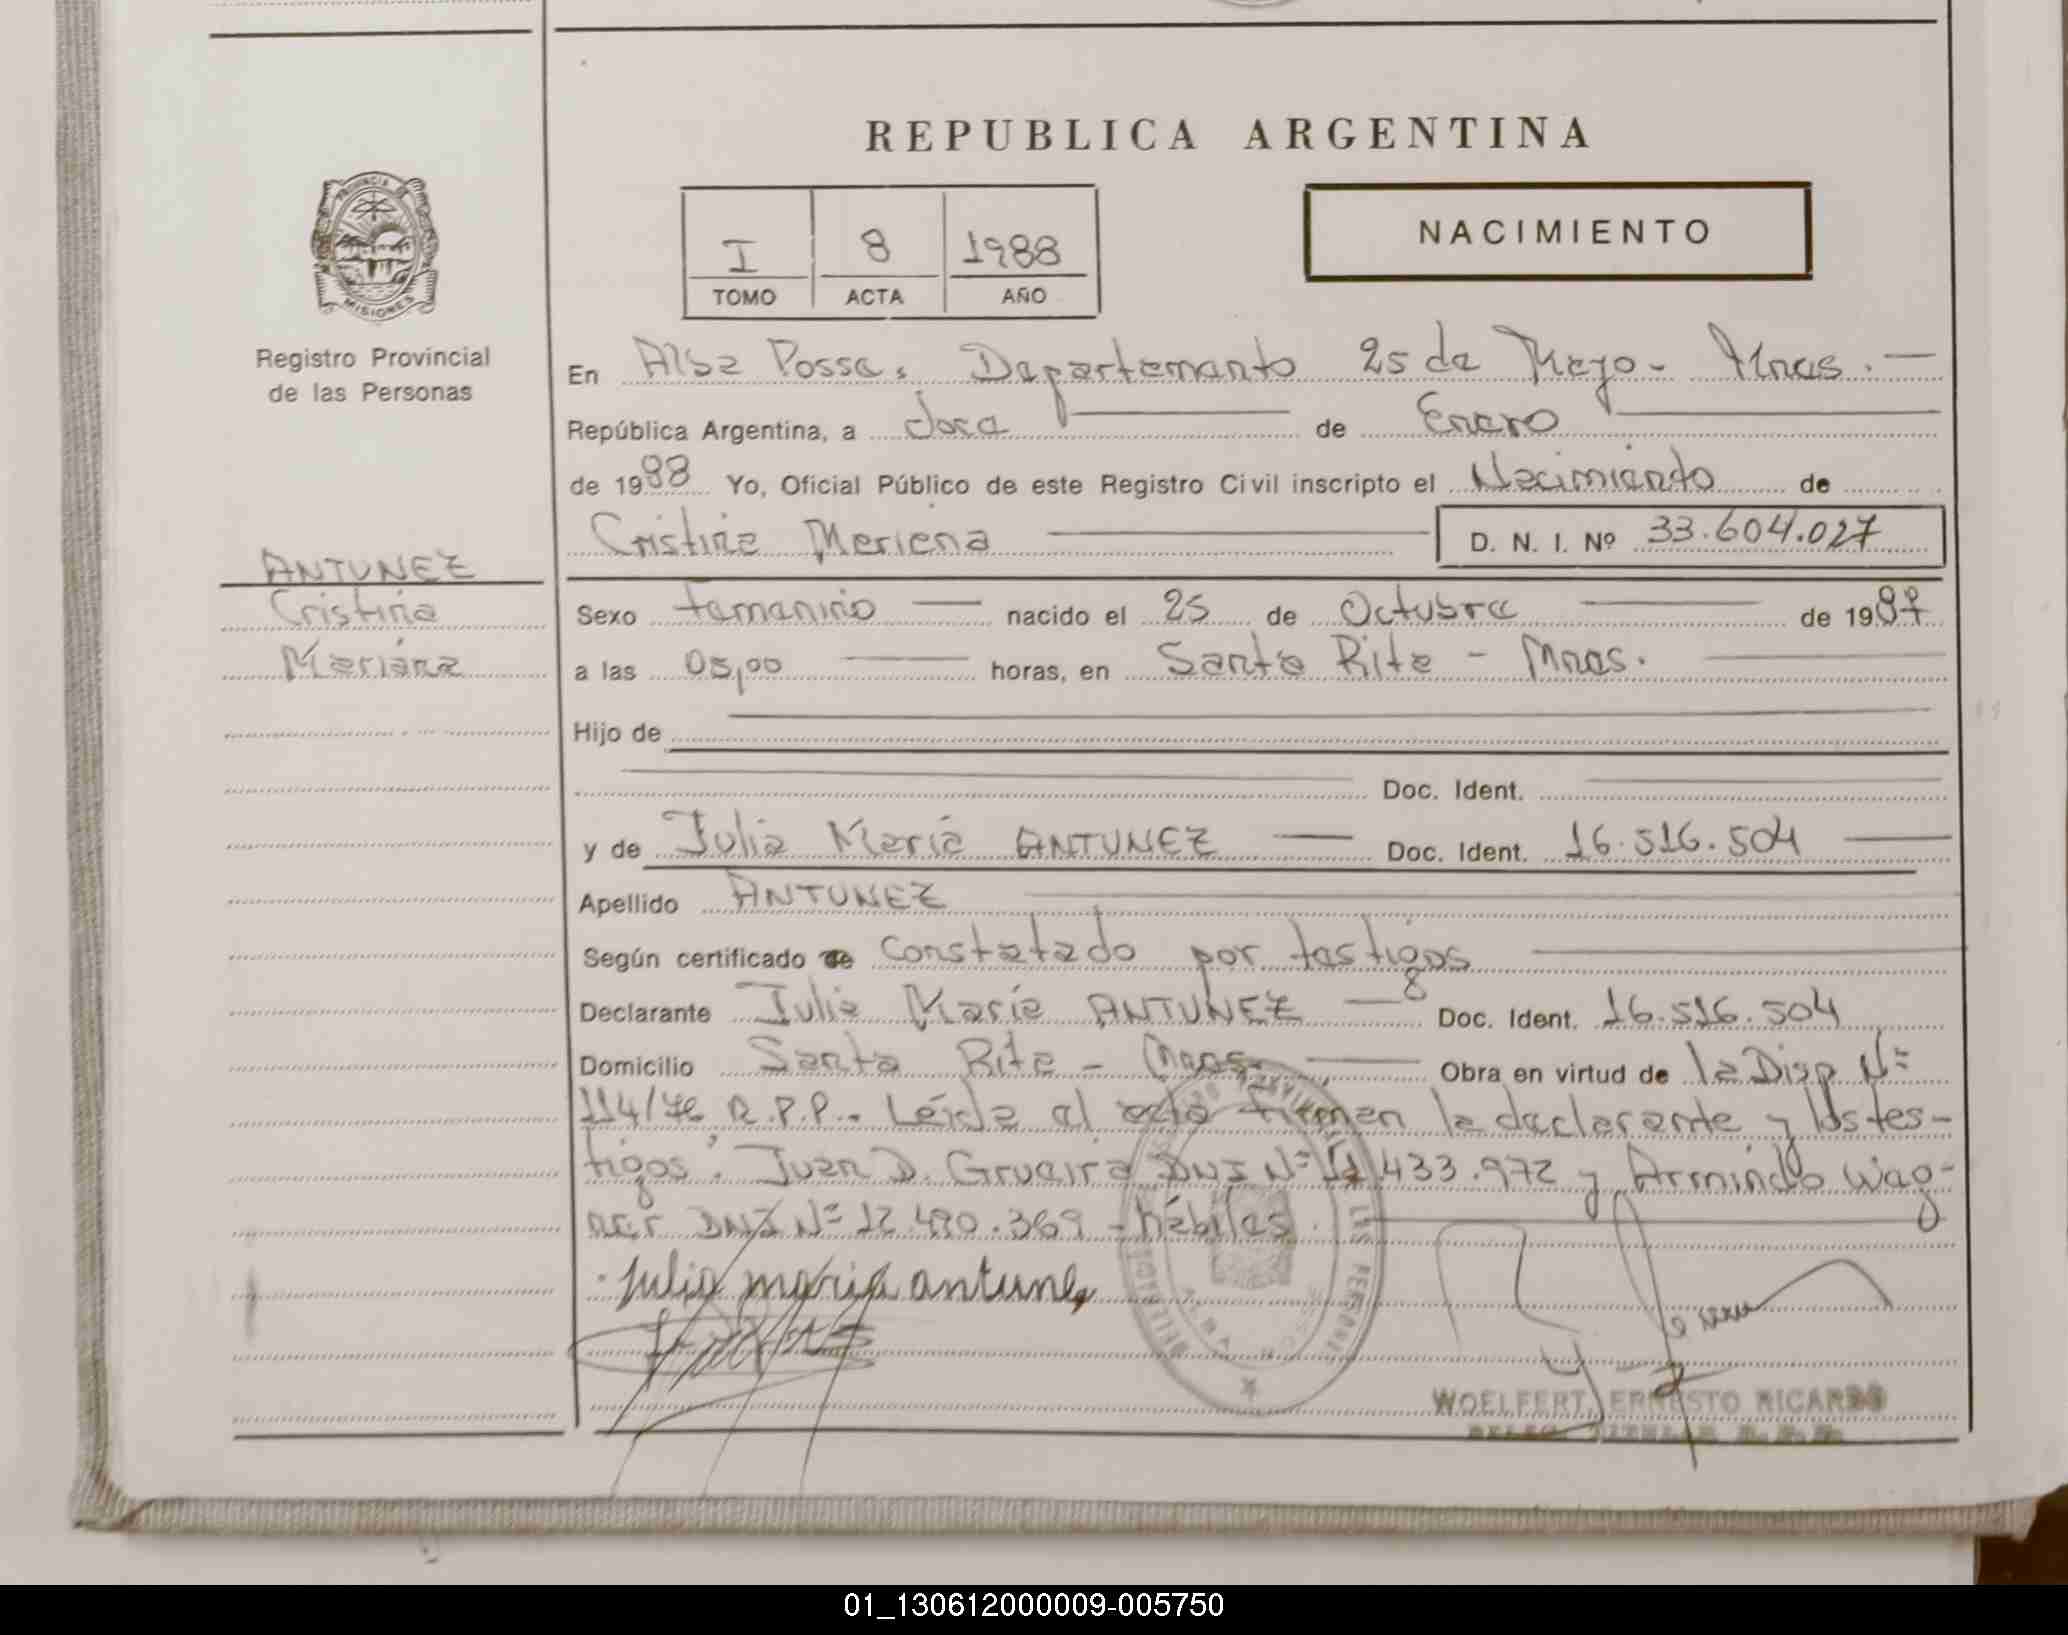 REPUBLICA ARGENTINA
PROVINCIA DE
MISIONES
Registro Provincial
de las Personas
I 8 1988
TOMO ACTA AÑO
NACIMIENTO
En Alba Posse. Departamento 25 de Mayo - Mnes. -
República Argentina, a doce de Enero
de 1988 Yo, Oficial Público de este Registro Civil inscripto el Nacimiento de
Cristina Mariana D. N. I. Nº 33.604.027
ANTUNEZ
Cristina
Mariana
Sexo femenino nacido el 25 de Octubre de 1987
a las 05,00 horas, en Santa Rita - Mnes.
Hijo de
Doc. Ident.
y de Julia María ANTUNEZ Doc. Ident. 16.516.504
Apellido ANTUNEZ
Según certificado de constatado por testigos
Declarante Julia María ANTUNEZ Doc. Ident. 16.516.504
Domicilio Santa Rita - Mnes. Obra en virtud de la Disp Nº
114/76 R.P.P. - Leída al acta firman la declarante y los tes-
tigos: Juan D. Grueira DNI Nº 433.972 y Armindo Wag-
ner DNI Nº 12.490.369 - hábiles.
Julia maria antunez
WOELFERT, ERNESTO RICARDO
01_130612000009-005750